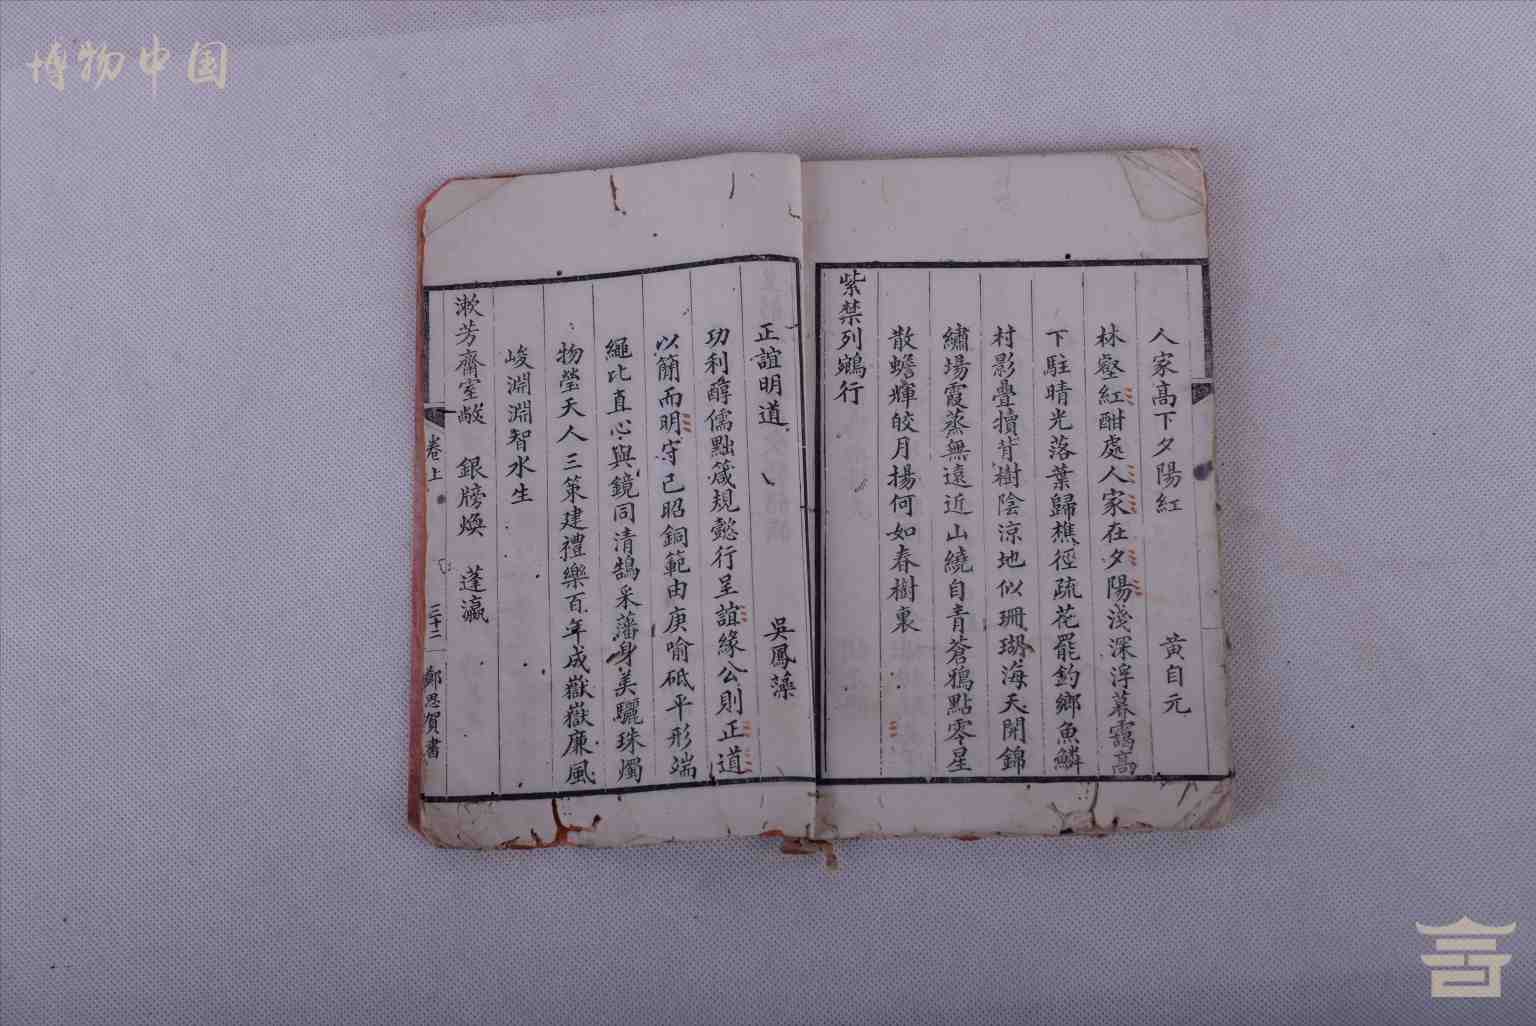 博物中国
人家高下夕陽紅
黃自元
林壑紅酣處人家在夕陽淺深浮暮靄高
下駐晴光落葉歸樵徑疏花罷釣鄉魚鱗
村影疊犢背樹陰涼地似珊瑚海天開錦
繡場霞蒸無遠近山繞自青蒼鴉點零星
散蟾輝皎月揚何如春樹裏
紫禁列鵷行
正誼明道
吳鳳藻
功利醇儒黜箴規懿行呈誼緣公則正道
以簡而明守己昭銅範由庚喻砥平形端
繩比直心與鏡同清鵠采藩身美驪珠燭
物瑩天人三策建禮樂百年成嶽嶽廉風
峻淵淵智水生
漱芳齋室敞 銀牓煥 蓬瀛
卷上
三十二
鄭恩賀書